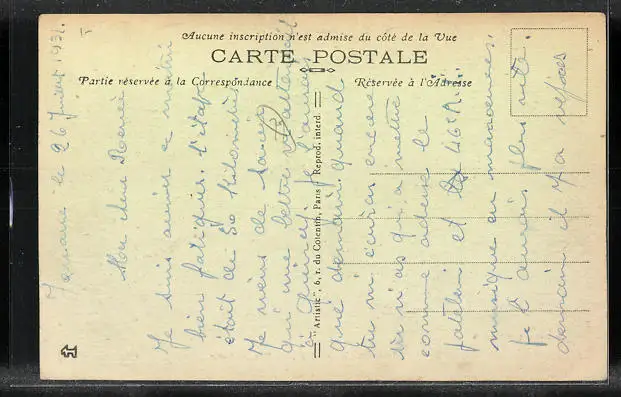 Aucune inscription n'est admise du côté de la Vue
CARTE POSTALE
Partie réservée à la Correspondance
Réservée à l'Adresse
"Artistic", 6, r. du Colentin, Paris Reprod. interd.
le 26 Juillet 1931.
I
Ma chère Renée
Je suis arrivé ce matin
bien fatiguée. l'étape
était de 50 kilomètres
Je viens de
qu'une lettre m'attendait
à
que demain. quand
tu m'écriras encore
tu n'as qu'à mettre
comme adresse le
bataillon et
musique en manoeuvres,
je l'aurai plus vite.
demain il y a repos